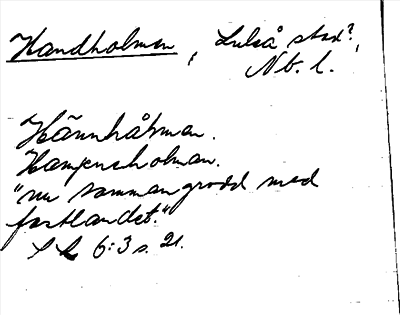 Handholmen, Luleå stad?,
Nb. l.
Hännhåłman.
Hamnsholman.
"nu sammangrodd med
fastlandet."
6:3 s. 21.